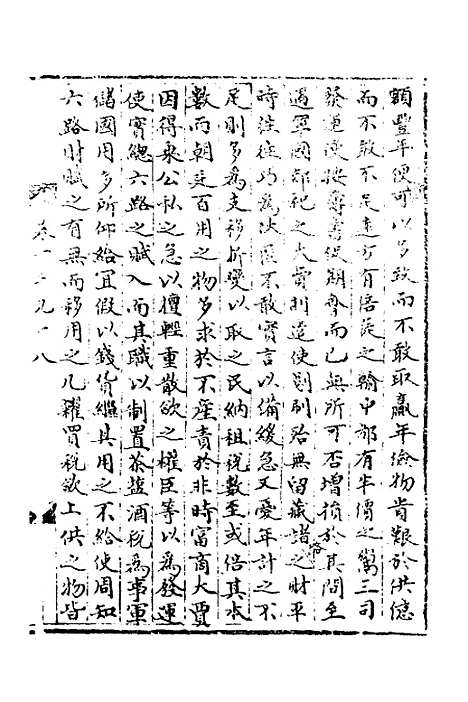 額豐年便可以多致而不敢取贏年儉物貴艱於供億
而不敢不足遠方有倍蓰之輸中都有半價之鬻三司
發運使按簿書促期會而已無所可否增損於其間至
遇軍國郊祀之大費則遣使剗刷殆無留藏諸之財平
時往往巧為伏匿不敢實言以備緩急又憂年計之不
足則多為支移折變以取之民納租稅數至或倍其本
數而朝廷百用之物多求於不產責於非時富商大賈
因得乘公私之急以擅輕重斂散之權臣等以為發運
使實總六路之賦入而其職以制置茶鹽酒稅為事軍
儲國用多所仰給宜假以錢貨繼其用之不給使周知
六路財賦之有無而移用之凡糴買稅斂上供之物皆